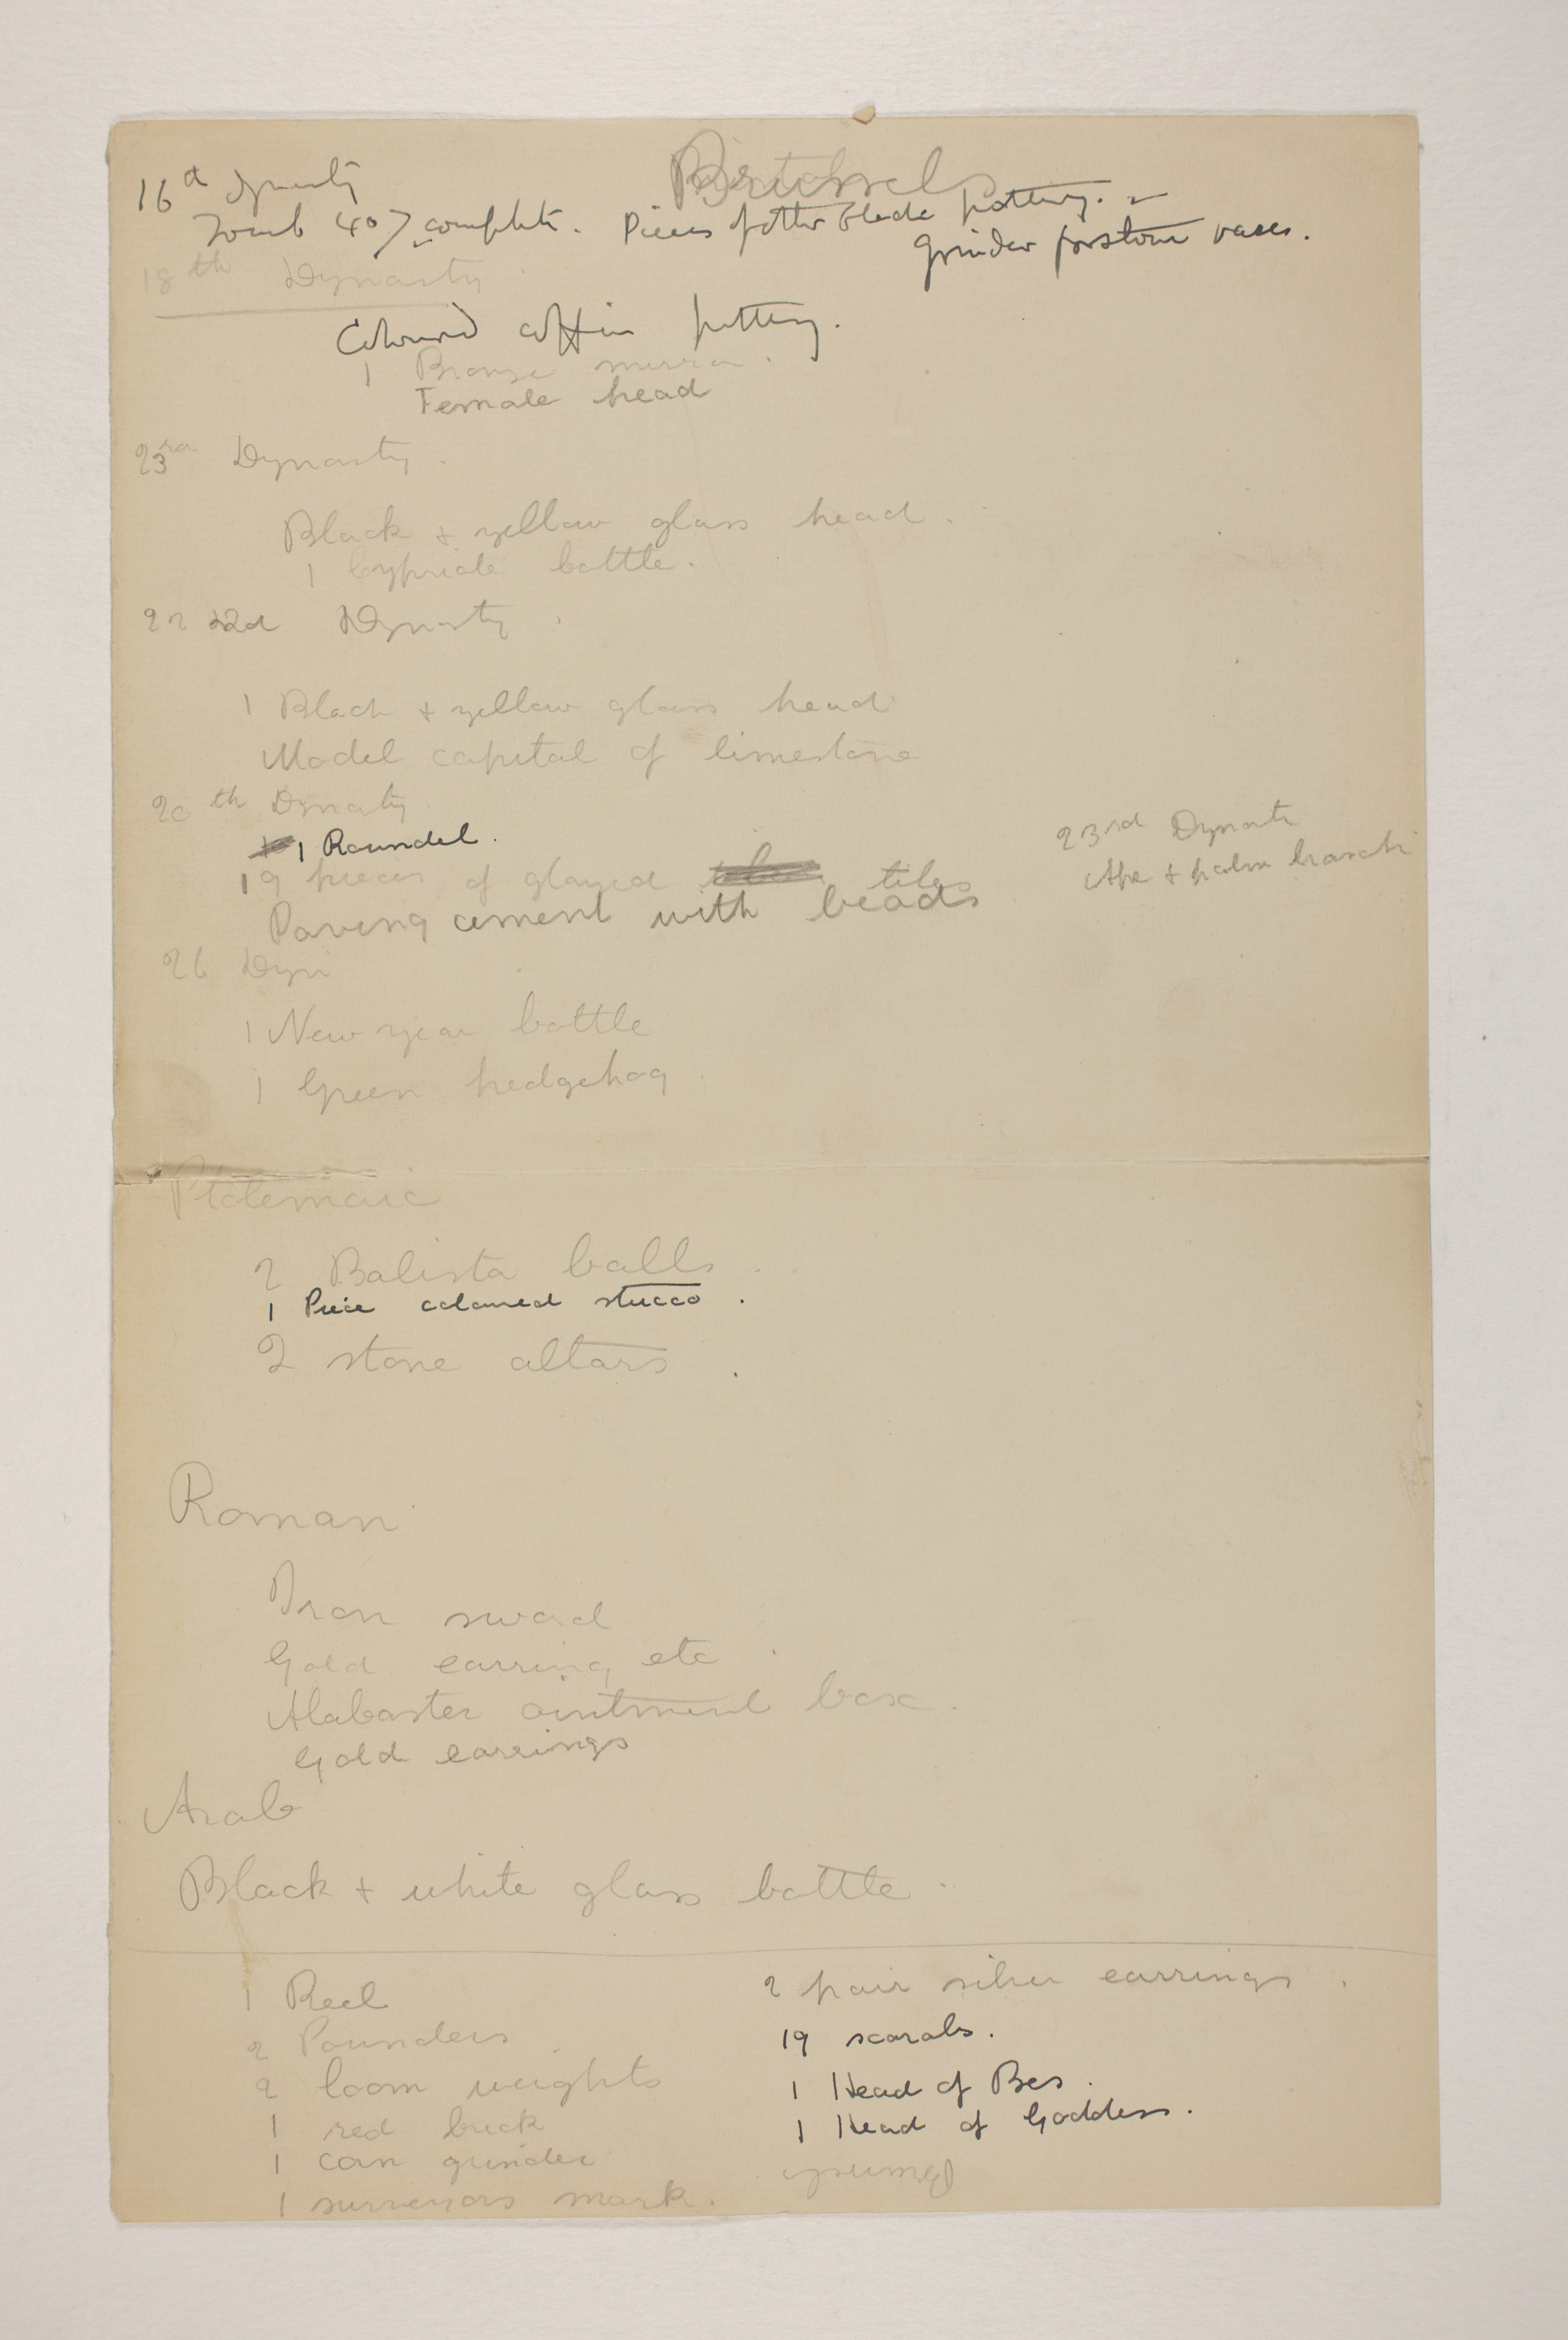 Brussels
16th Dynasty
Tomb 407 complete. Pieces of other black pottery.
Grinder for stone vases.
18th Dynasty
Coloured coffin pottery.
1 Bronze mirror.
Female head
23rd Dynasty.
Black + yellow glass head.
1 Cypriote bottle.
22nd Dynasty.
1 Black + yellow glass head
Model capital of limestone
20th Dynasty
1 Roundel.
19 pieces of glazed tiles
Paving cement with beads
23rd Dynasty
Ape + palm branch
26 Dyn
1 New year bottle
1 Green hedgehog.
Ptolemaic
2 Balista balls.
1 Piece coloured stucco.
2 stone altars.
Roman
Iron sword
Gold earring etc.
Alabaster ointment box.
Gold earrings
Arab
Black + white glass bottle.
1 Reel
2 Pounders
2 loom weights
1 red brick
1 corn grinder
1 surveyors mark.
2 pair silver earrings.
19 scarabs.
1 Head of Bes.
1 Head of Goddess.